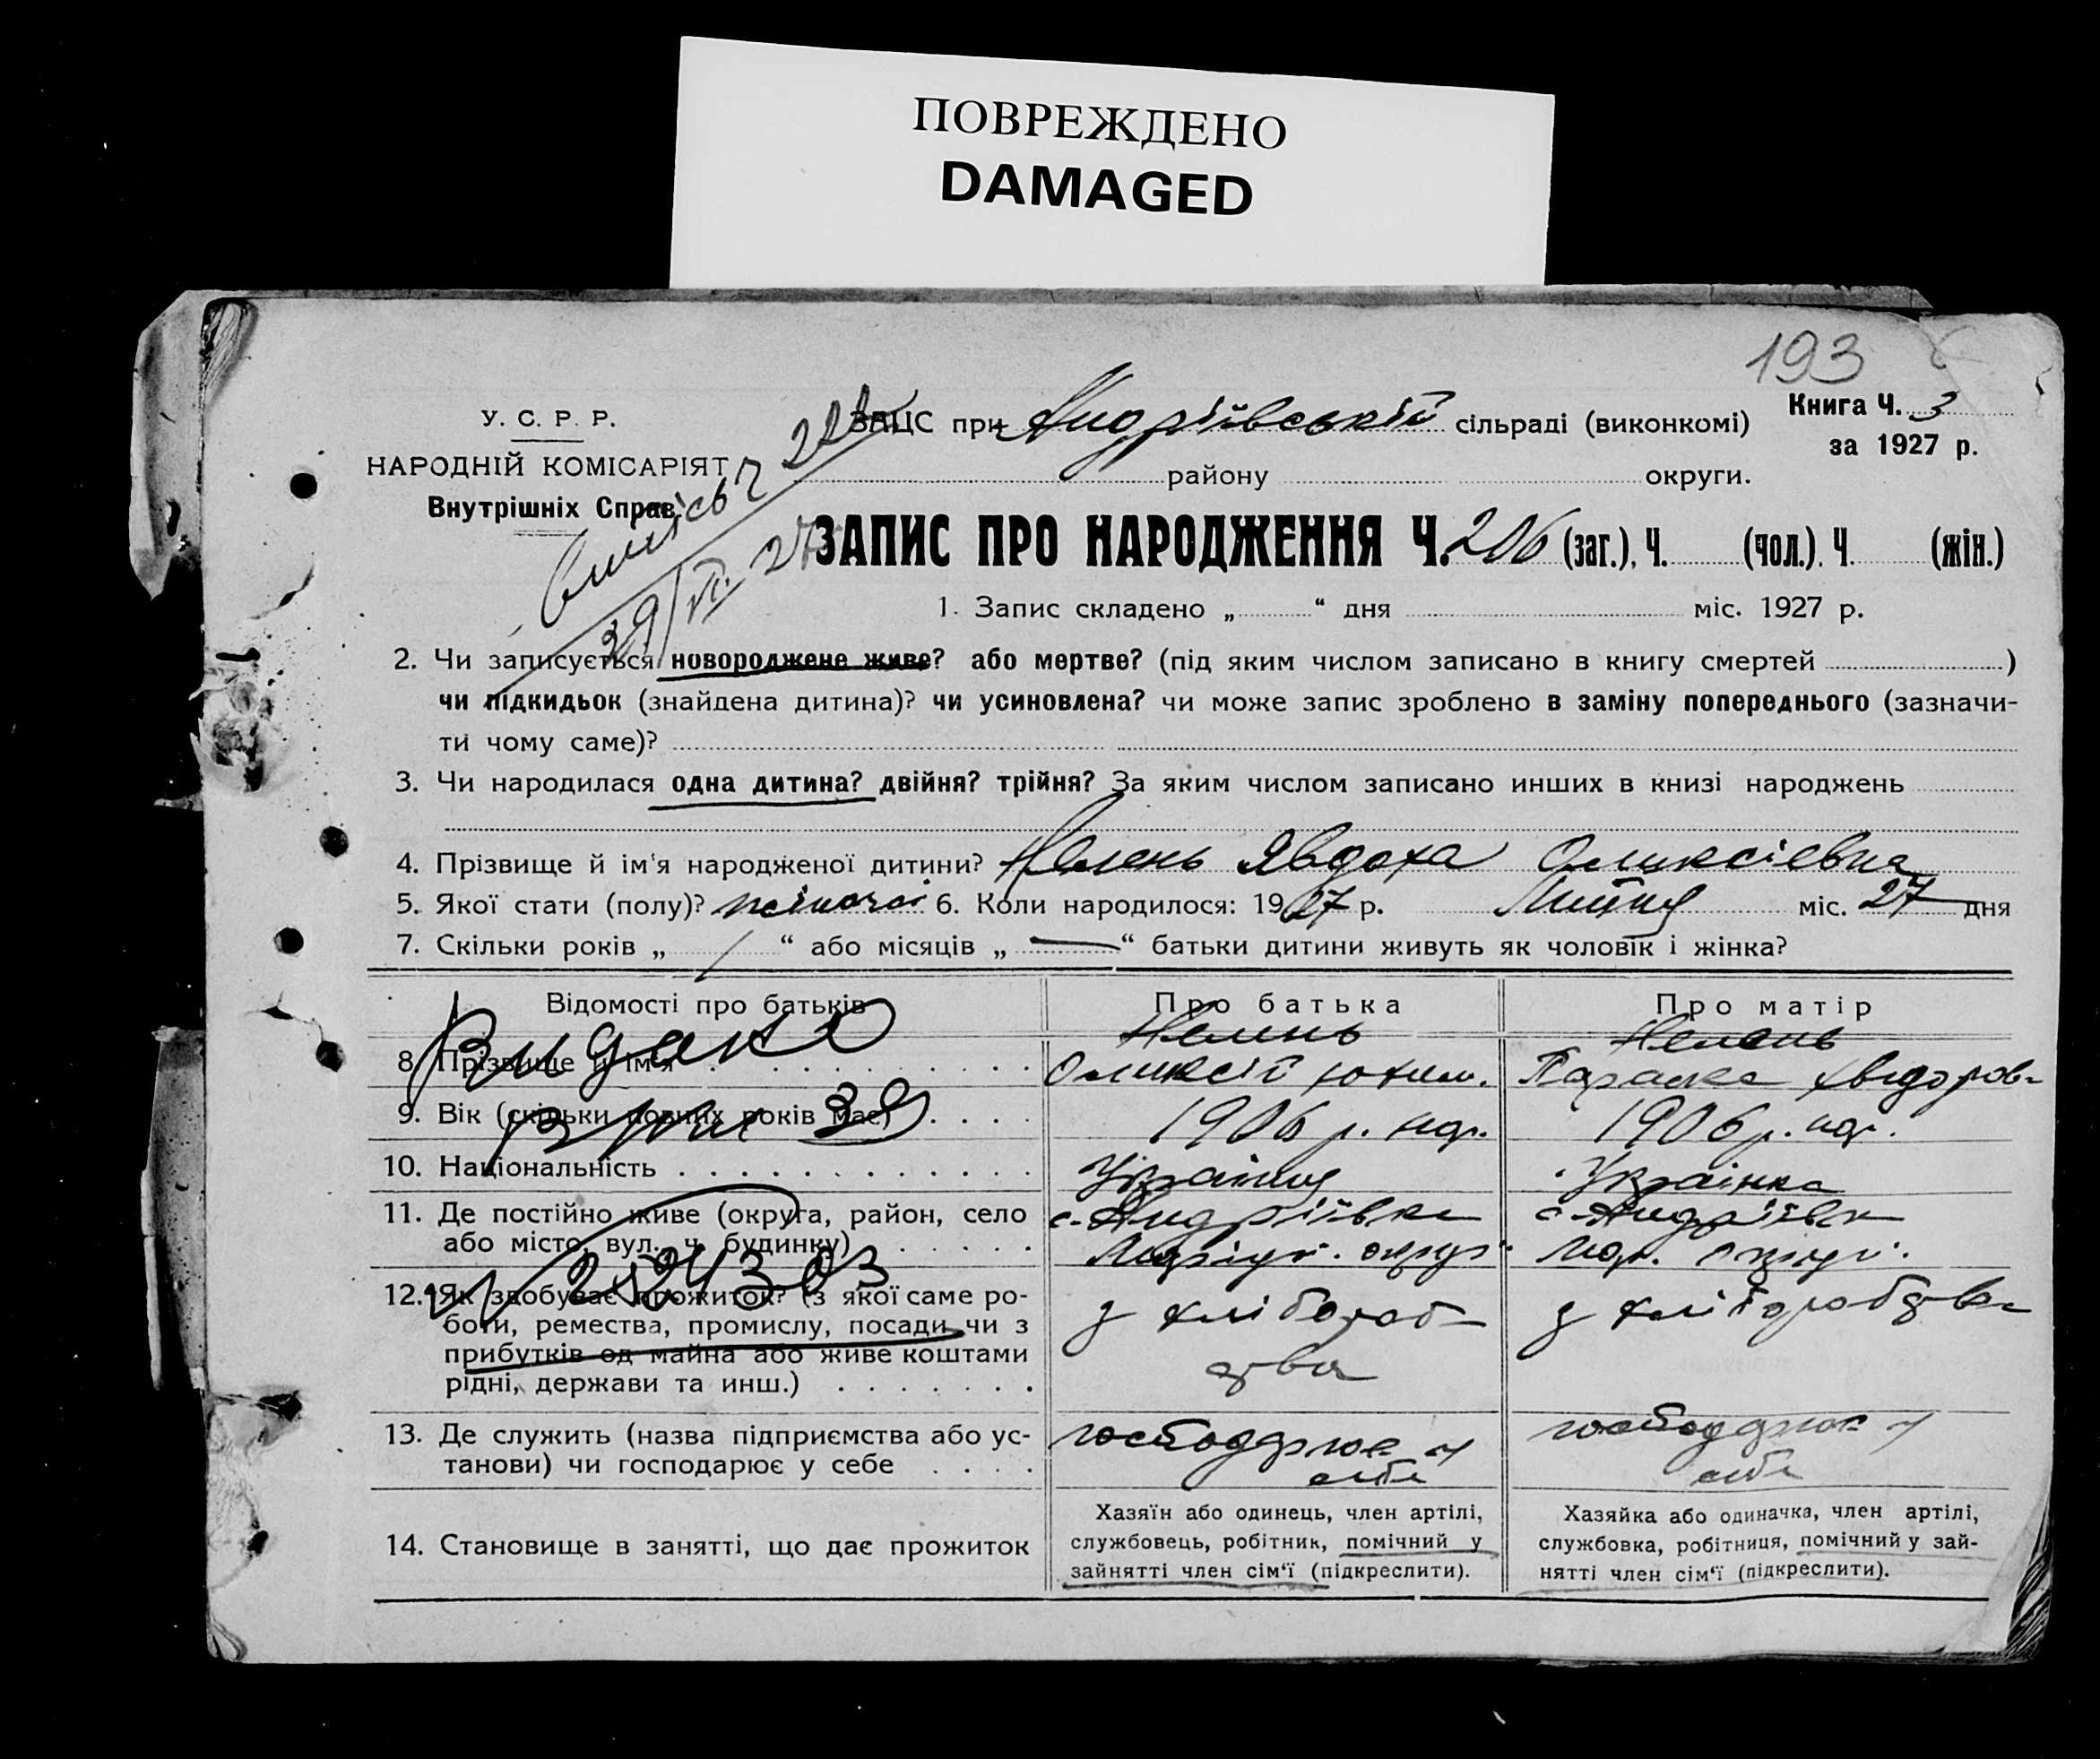 ПОВРЕЖДЕНО
DAMAGED
193
У. С. Р. Р.
НАРОДНІЙ КОМІСАРІЯТ
Внутрішніх Справ
ЗАЦС при Андріївській сільраді (виконкомі)
Книга Ч. 3
за 1927 р.
району округи.
29/VI 27
ЗАПИС ПРО НАРОДЖЕННЯ Ч. 206 (заг.), Ч. (чол.). Ч. (жін.)
1. Запис складено „ “ дня міс. 1927 р.
2. Чи записується новороджене живе? або мертве? (під яким числом записано в книгу смертей )
чи підкидьок (знайдена дитина)? чи усиновлена? чи може запис зроблено в заміну попереднього (зазначи-
ти чому саме)?
3. Чи народилася одна дитина? двійня? трійня? За яким числом записано инших в книзі народжень
4. Прізвище й ім'я народженої дитини? Явдоха Оликсіевна
5. Якої стати (полу)? жіночої 6. Коли народилося: 1927 р. міс. 27 дня
7. Скільки років „ / “ або місяців „ — “ батьки дитини живуть як чоловік і жінка?
Відомості про батьків Про батька Про матір
8. Прізвище й ім'я Оликсій Юхим. Параска Хведоров-
9. Вік (скільки повних років має) 1906 р. нар. 1906 р. нар.
39
10. Національність Українец Українка
11. Де постійно живе (округа, район, село с. Андріївка с. Андріївка
або місто, вул., ч. будинку)
12. Як здобуває прожиток? (з якої саме ро- з хлібороб- з хліборобства
боти, ремества, промислу, посади чи з
прибутків од майна або живе коштами ства
рідні, держави та инш.)
13. Де служить (назва підприємства або ус- господарює у господарює у
танови) чи господарює у себе себе себе
14. Становище в занятті, що дає прожиток
Хазяїн або одинець, член артілі,
службовець, робітник, помічний у
зайнятті член сім‘ї (підкреслити).
Хазяйка або одиначка, член артілі,
службовка, робітниця, помічний у зай-
нятті член сім‘ї (підкреслити).